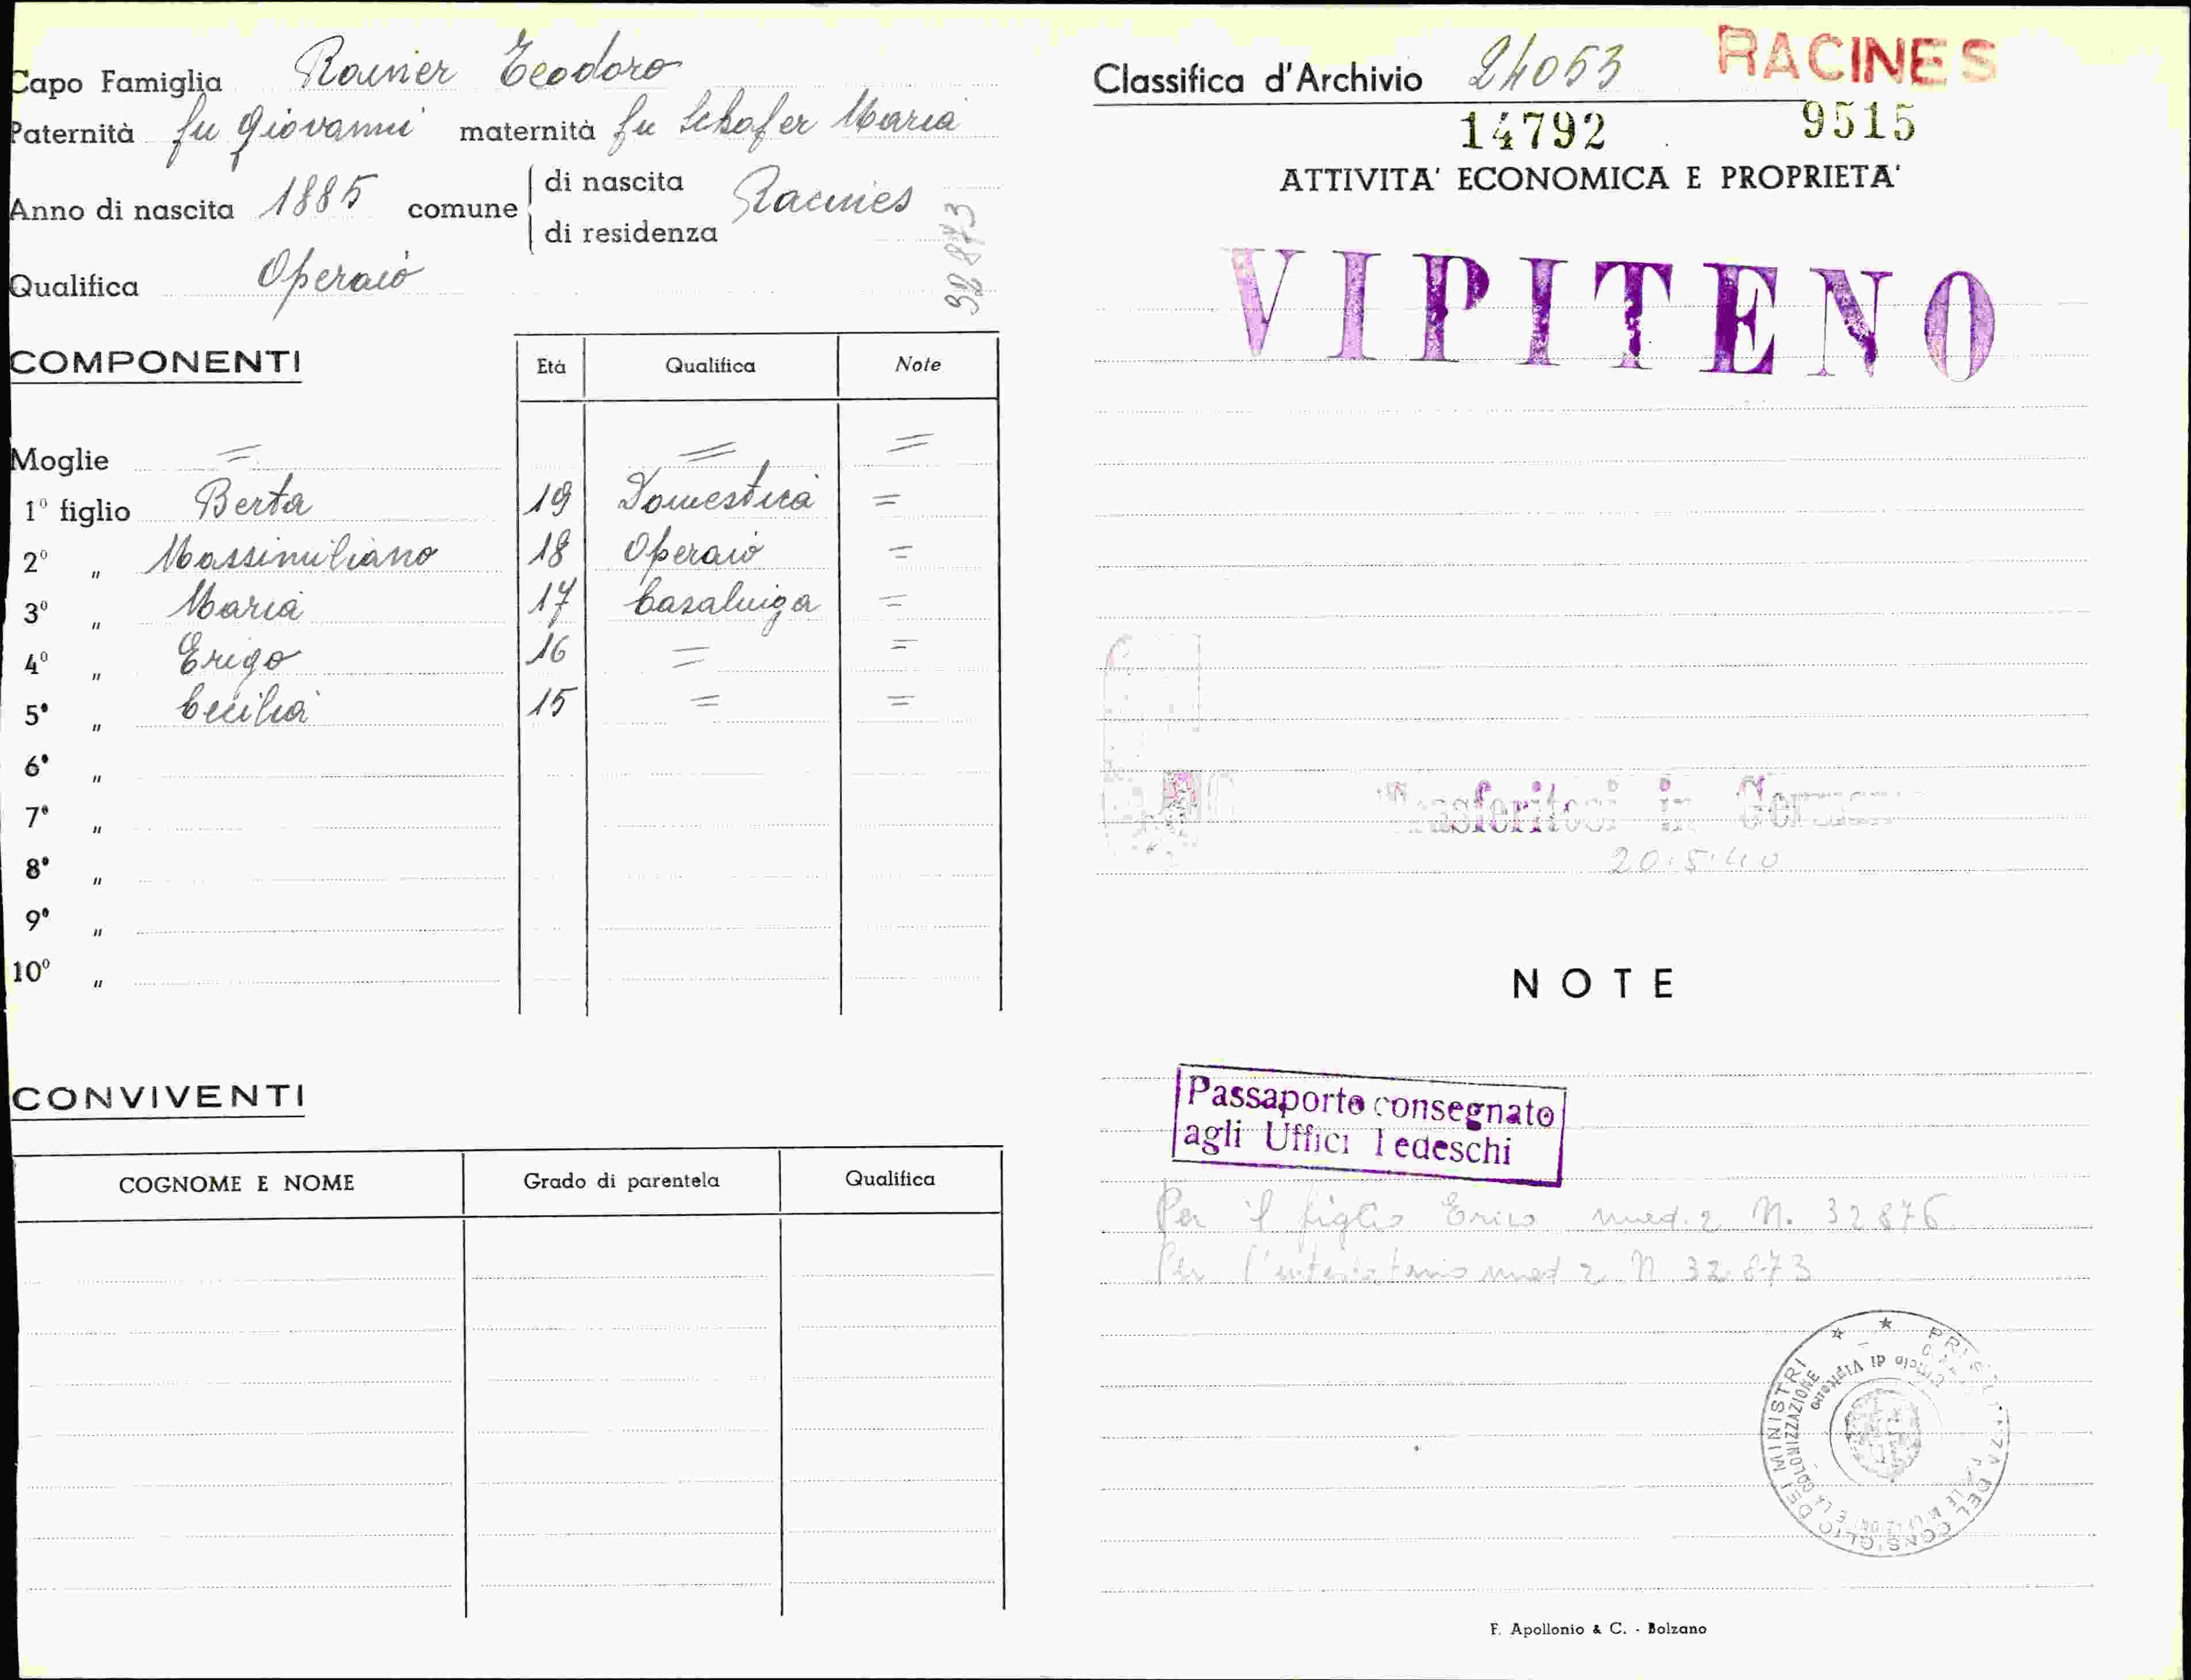 Capo Famiglia Rainer Teodoro
Paternità fu Giovanni maternità fu Schafer Maria
Anno di nascita 1885 comune di nascita Racines
di residenza
32873
Qualifica Operaio
COMPONENTI Età Qualifica Note
Moglie = = =
1º figlio Berta 19 Domestica =
2º " Massimiliano 18 Operaio =
3º " Maria 17 Casalinga =
4º " Erigo 16 = =
5º " Cecilia 15 = =
6º "
7º "
8º "
9º "
10º "
CONVIVENTI
COGNOME E NOME Grado di parentela Qualifica
Classifica d'Archivio 24053 RACINES
14792 9515
ATTIVITA' ECONOMICA E PROPRIETA'
VIPITENO
Trasferitosi in Germania
20.5.40
NOTE
Passaporto consegnato
agli Uffici Tedeschi
Per il figlio Erico mod. 2 N. 32876
Per l'intestatario mod 2 N 32873
PRESIDENZA DEL CONSIGLIO DEI MINISTRI
E LA COLONIZZAZIONE
Ufficio di Vipiteno
F. Apollonio & C. - Bolzano